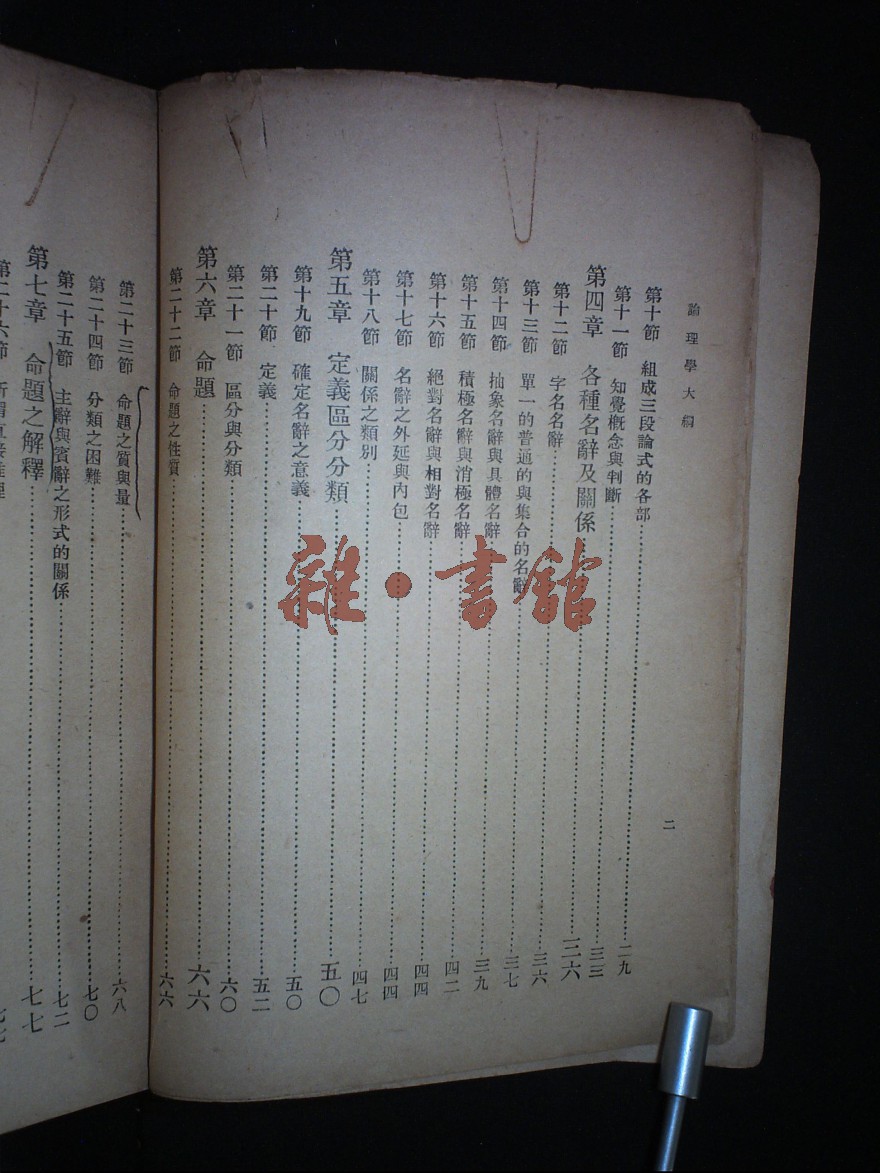 論理學大綱
二
第十節 組成三段論式的各部……二九
第十一節 知覺概念與判斷……三三
第四章 各種名辭及關係……三六
第十二節 字名名辭……三六
第十三節 單一的普通的與集合的名辭……三七
第十四節 抽象名辭與具體名辭……三九
第十五節 積極名辭與消極名辭……四二
第十六節 絕對名辭與相對名辭……四四
第十七節 名辭之外延與內包……四四
第十八節 關係之類別……四七
第五章 定義區分分類……五〇
第十九節 確定名辭之意義……五〇
第二十節 定義……五二
第二十一節 區分與分類……六〇
第六章 命題……六六
第二十二節 命題之性質……六六
第二十三節 命題之質與量……六八
第二十四節 分類之困難……七〇
第二十五節 主辭與賓辭之形式的關係……七二
第七章 命題之解釋……七七
第二十六節
雜·書館